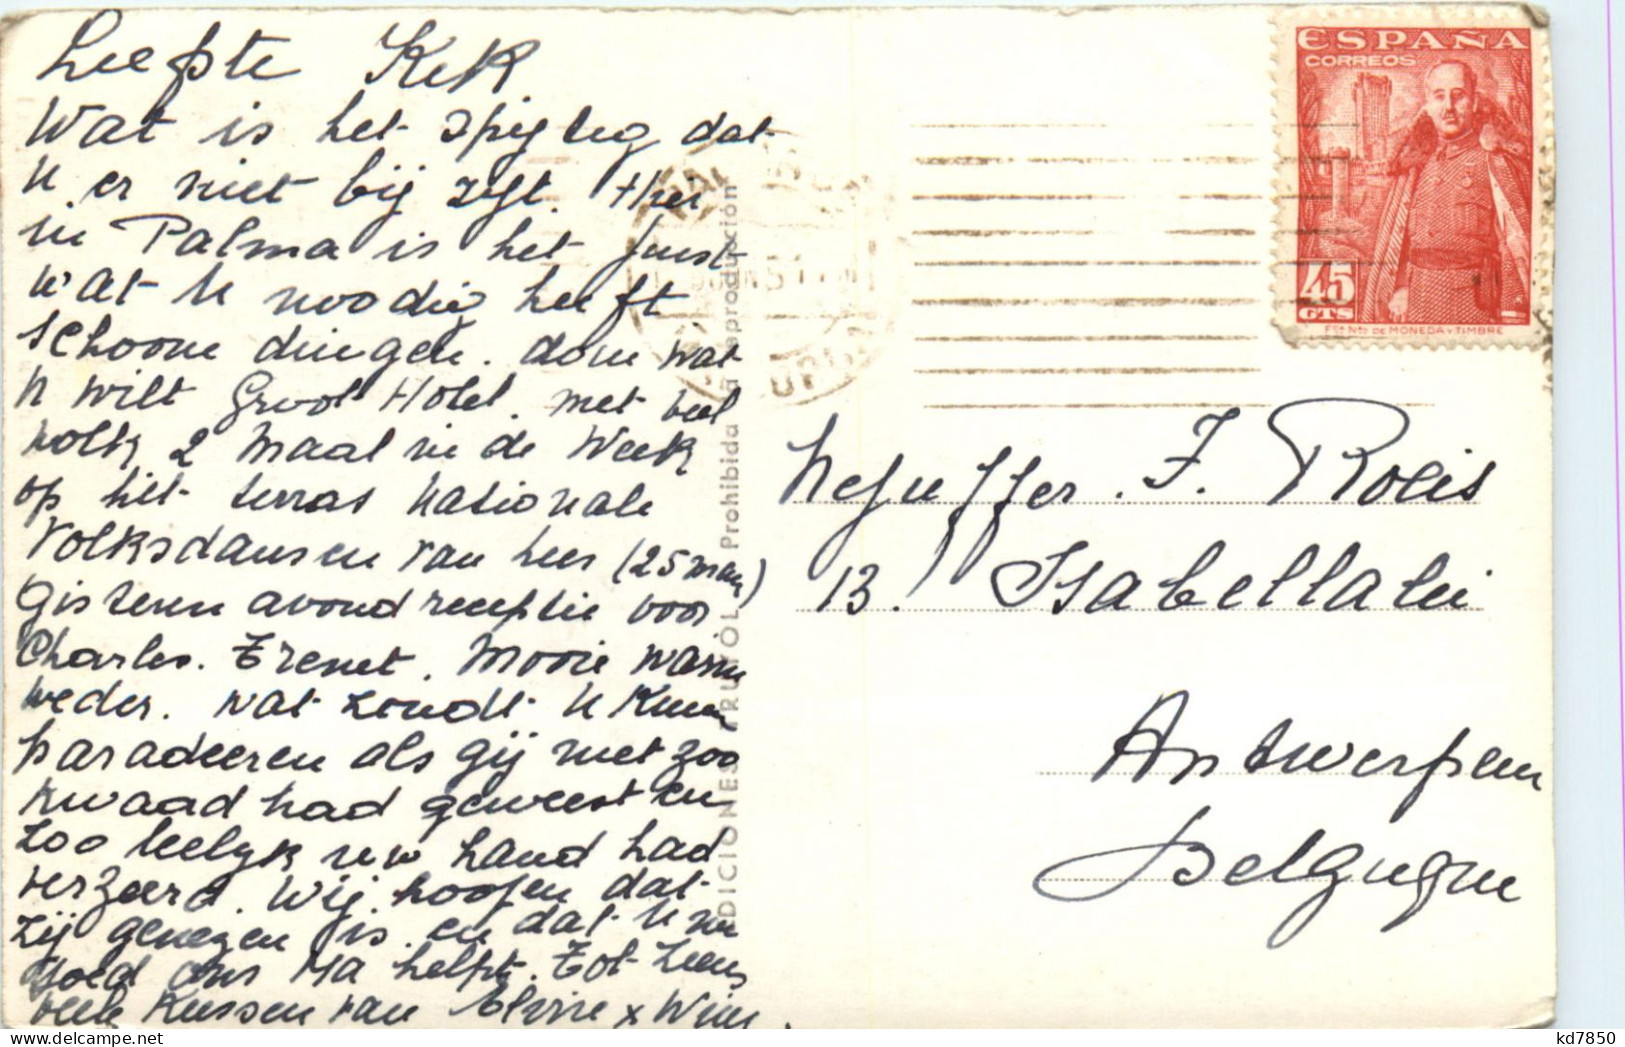 Liefste Kek
Wat is het spijtig dat
U er niet bij zijt. Hier
in Palma is het juist
wat U noodig heeft
schoone dingen. doen wat
U wilt Groot Hotel. met veel
volk 2 maal in de Week
op het terras Nationale
Volksdansen van hier (25 man)
Gisteren avond receptie voor
Charles. Trenet. Mooie warm
weder. wat zoudt U Kunn
paradeeren als gij niet zoo
kwaad had geweest en
zoo leelijk uw hand had
verzeerd. Wij hoopen dat
zij genezen is en dat U nu
goed ons Ma helpt. Tot ziens
vele Kussen van Elvire x Wim.
ESPAÑA
CORREOS
45
CTS
FCA NAL DE MONEDA Y TIMBRE
EDICIONES TRUYOL Prohibida la reproducción
Mejuffer. J. Rolis
13. Isabellalei
Antwerpen
Belgique
delcampe.net
kd7850